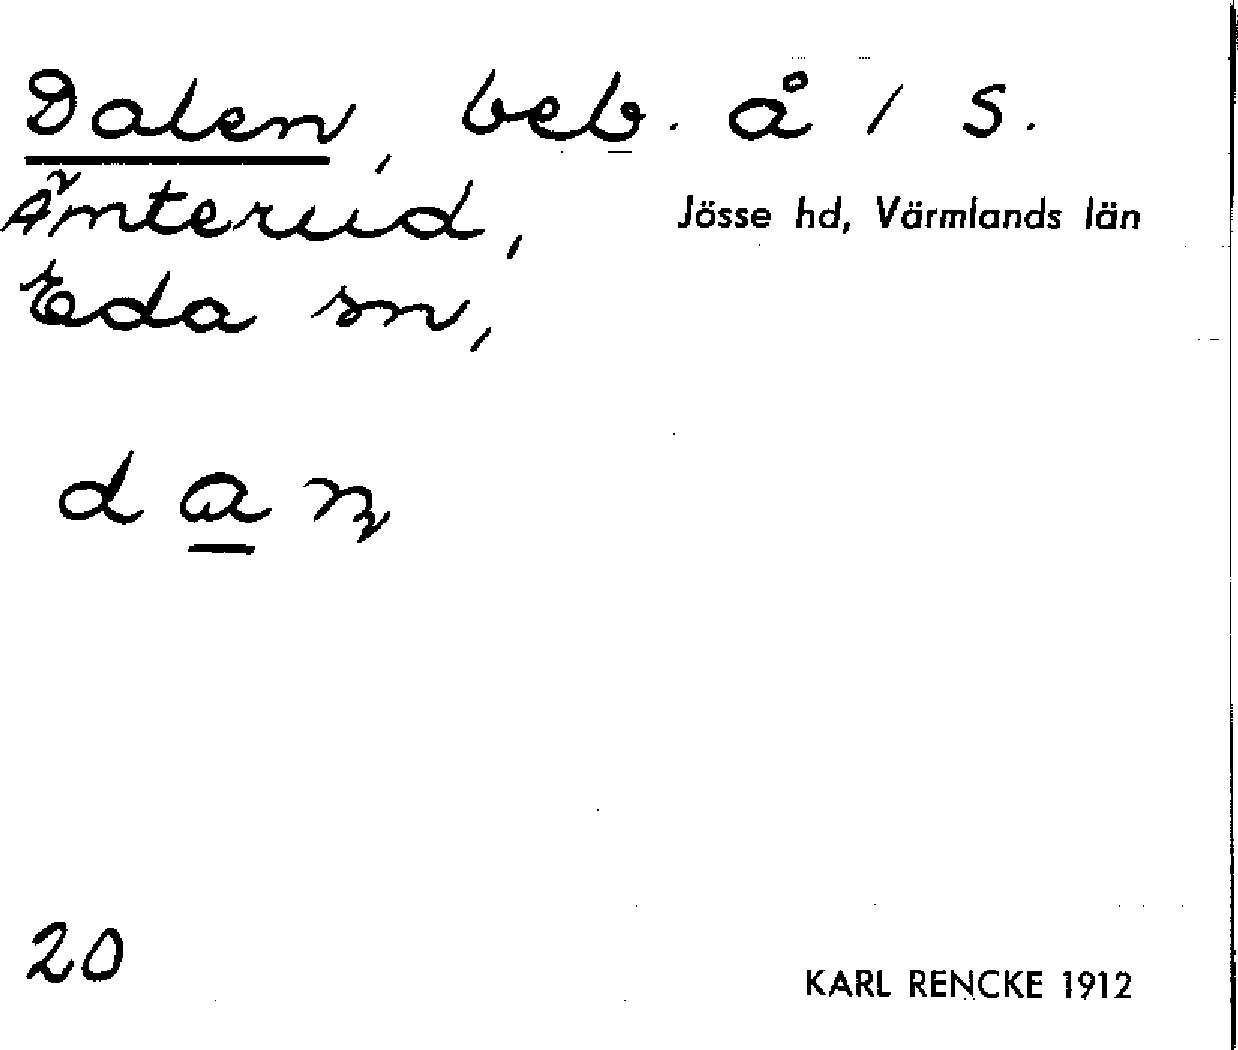 Dalen, beb. å / S.
Ämterud,
Jösse hd, Värmlands län
Eda sn,
dan
20
KARL RENCKE 1912